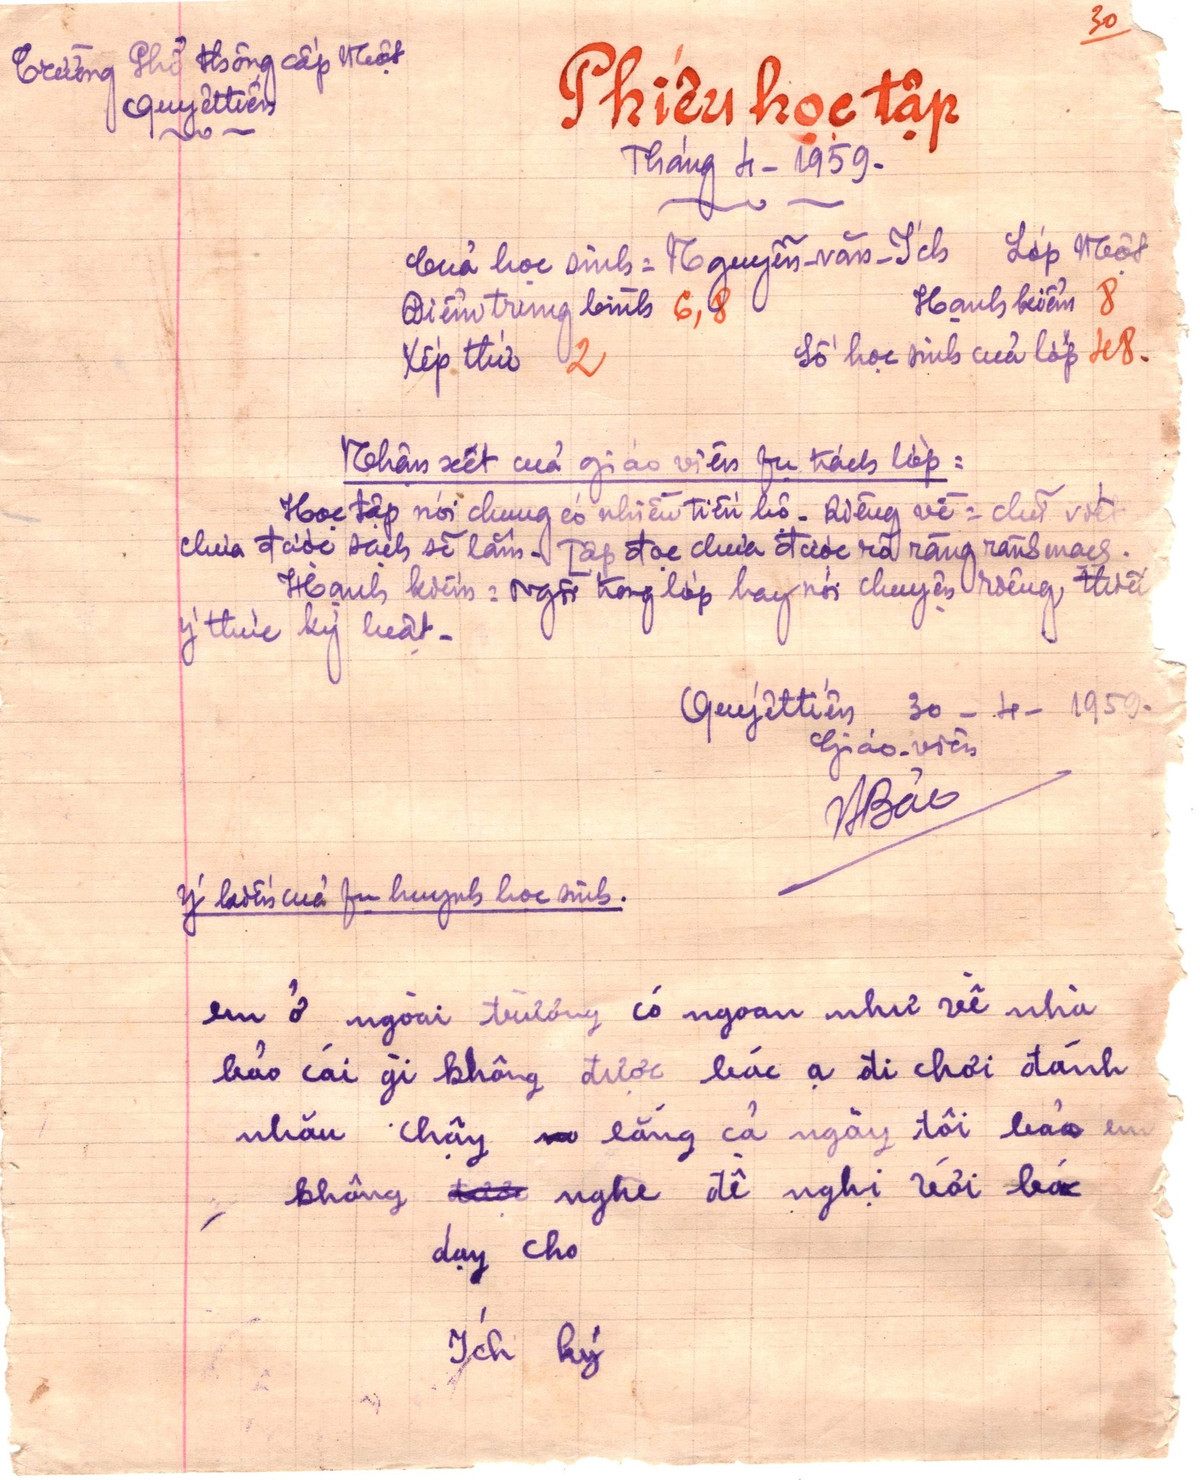 30
Trường Phổ thông cấp Một
Quyết tiến
Phiếu học tập
Tháng 4 - 1959.
Của học sinh = Nguyễn-văn-Ích Lớp Một
Điểm trung bình 6,8 Hạnh kiểm 8
Xếp thứ 2 Số học sinh của lớp 48.
Nhận xét của giáo viên fụ trách lớp =
Học tập nói chung có nhiều tiến bộ. Riêng về = chữ viết
chưa được sạch sẽ lắm. Tập đọc chưa được rõ ràng rành mạch.
Hạnh kiểm = Ngồi trong lớp hay nói chuyện riêng, thiếu
ý thức kỷ luật.
Quyết tiến 30 - 4 - 1959.
Giáo-viên
Bảo
Ý kiến của fụ huynh học sinh.
em ở ngòai trường có ngoan như về nhà
bảo cái gì không được bác ạ đi chơi đánh
nhău chậy lăng cả ngày tôi bảo em
không nghe đề nghị với bác
dạy cho
Ích ký